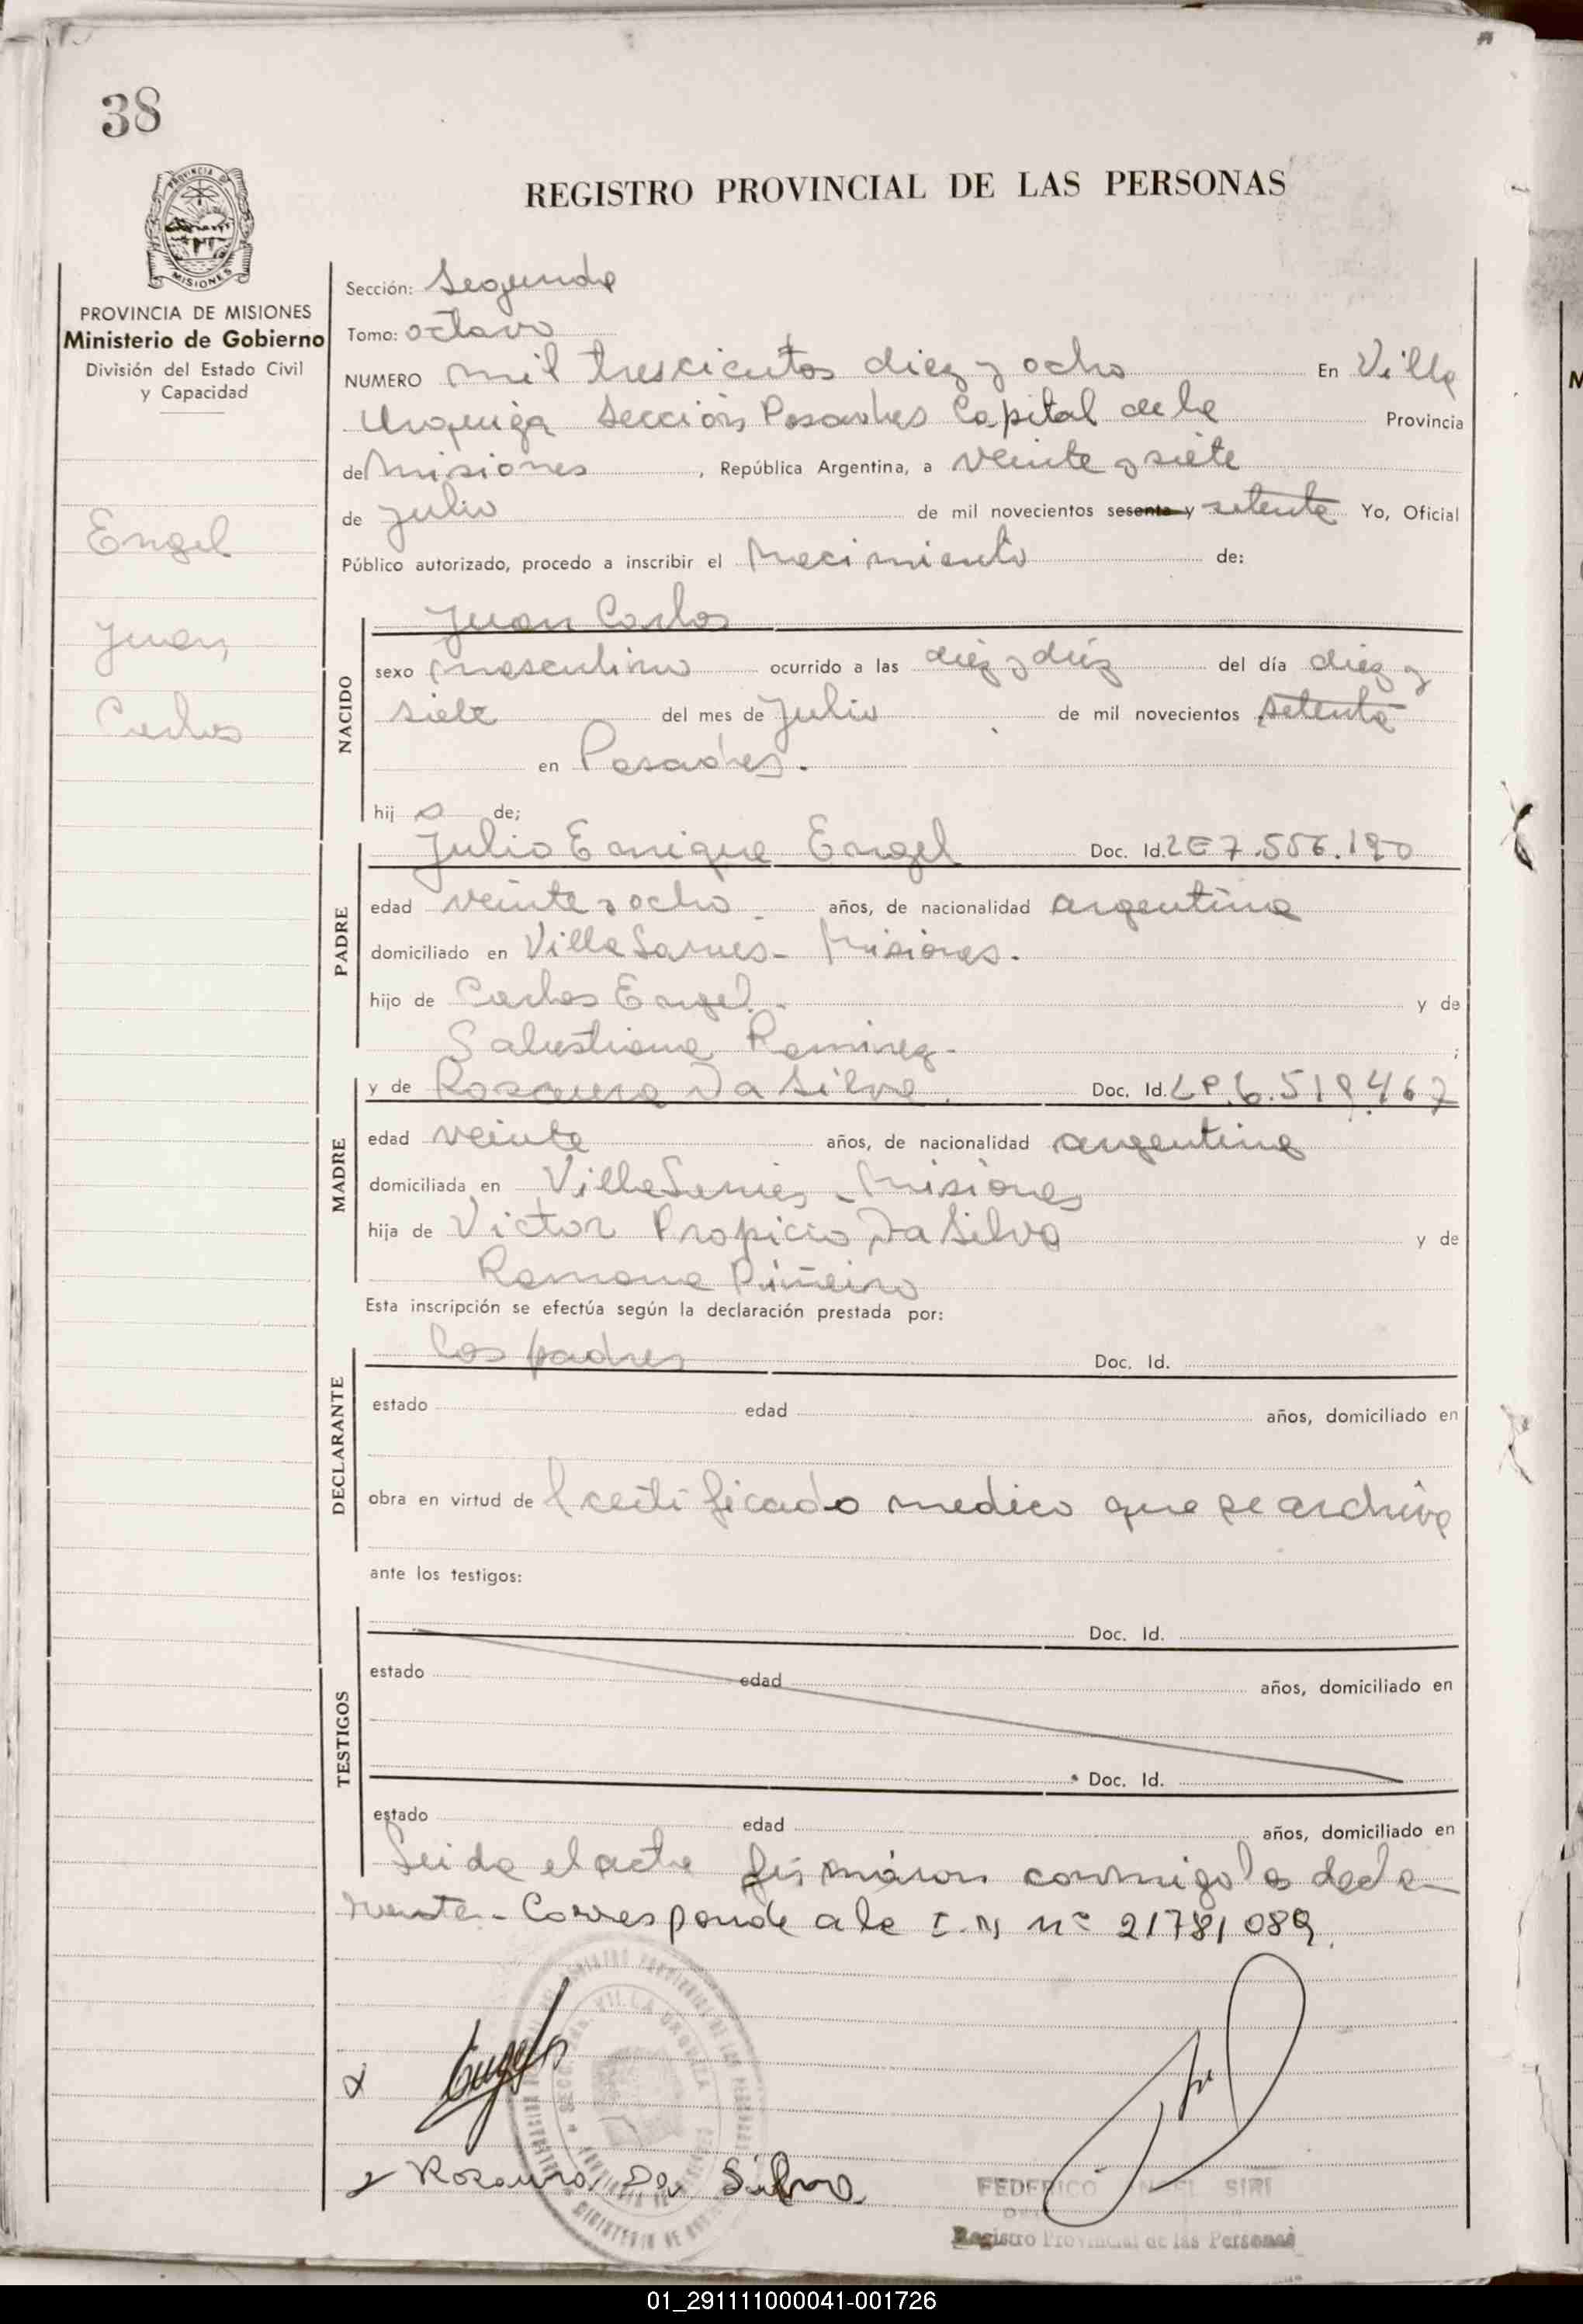 38
REGISTRO PROVINCIAL DE LAS PERSONAS
PROVINCIA DE MISIONES
Ministerio de Gobierno
División del Estado Civil
y Capacidad
Engel
Juan
Carlos
Sección: Segunda
Tomo: octavo
NUMERO mil trescientos diez y ocho En Villa
Urquiza Sección Posadas Capital de la Provincia
de Misiones, República Argentina, a veinte y siete
de Julio de mil novecientos sesenta y setenta Yo, Oficial
Público autorizado, procedo a inscribir el Nacimiento de:
NACIDO
Juan Carlos
sexo masculino ocurrido a las diez y diez del día diez y
siete del mes de Julio de mil novecientos setenta
en Posadas.
hijo de;
PADRE
Julio Enrique Engel Doc. Id. LE 7.556.190
edad veinte y ocho años, de nacionalidad argentina
domiciliado en Villa - Misiones.
hijo de Carlos Engel y de
Salustiana Ramirez ;
MADRE
y de Rosaura Da Silva Doc. Id. 467
edad veinte años, de nacionalidad argentina
domiciliada en Villa - Misiones
hija de Victor Propicio Da Silva y de
Ramona Piñeiro
Esta inscripción se efectúa según la declaración prestada por:
DECLARANTE
los padres Doc. Id.
estado edad años, domiciliado en
obra en virtud de certificado medico que se archiva
ante los testigos:
TESTIGOS
Doc. Id.
estado edad años, domiciliado en
Doc. Id.
estado edad años, domiciliado en
Leida el acta firmaron conmigo
Corresponde a la nº 21781089.
Engel
Rosaura Da Silva
FEDERICO SIRI
Registro Provincial de las Personas
01_291111000041-001726